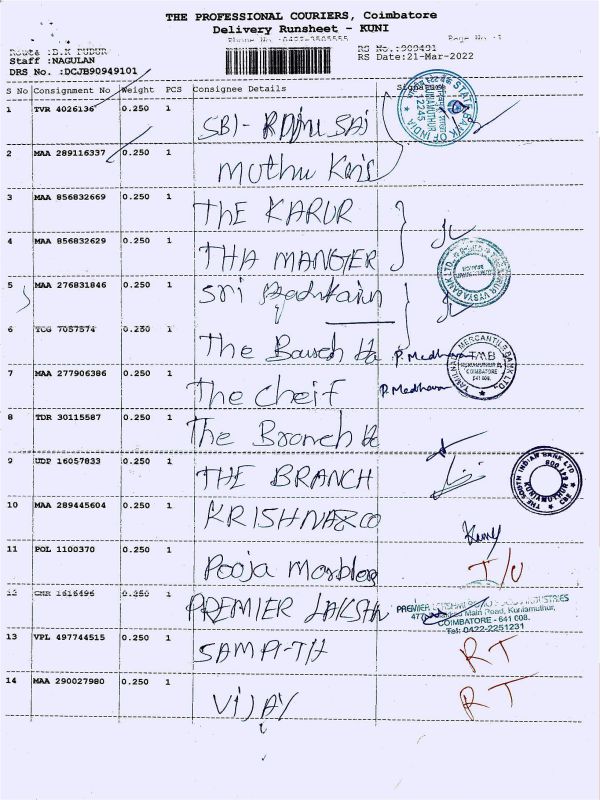 THE PROFESSIONAL COURIERS, Coimbatore
Delivery Runsheet - KUNI
Phone No :0422-3505555 Page No :1
Route :B.K PUDUR RS No.:909491
Staff :NAGULAN RS Date:21-Mar-2022
DRS No. :DCJB90949101
S No Consignment No Weight PCS Consignee Details Signature
1 TVR 4026136 0.250 1 SBI -
STATE BANK OF INDIA
2 MAA 289116337 0.250 1 Muthu
3 MAA 856832669 0.250 1 THE KARUR
4 MAA 856832629 0.250 1 THA MANGER
5 MAA 276831846 0.250 1 Sri
6 TCG 7057574 0.250 1 The P. Medhava
TAMILNAD MERCANTILE BANK LTD
TMB
COIMBATORE
641 008.
7 MAA 277906386 0.250 1 The Cheif P. Medhava
8 TDR 30115587 0.250 1 The Bronch
9 UDP 16057833 0.250 1 THE BRANCH
THE SOUTH INDIAN BANK LTD
KUNIAMUTHUR
CBE
10 MAA 289445604 0.250 1 KRISHNA & CO
11 POL 1100370 0.250 1 Pooja Morbles
12 CMR 1616496 0.250 1 PREMIER LAKSHM
PREMIER INDUSTRIES
Main Road, Kuniamuthur,
COIMBATORE - 641 008.
Tel: 0422-2251231
13 VPL 497744515 0.250 1 SAMPITH RT
14 MAA 290027980 0.250 1 VIJAY RT